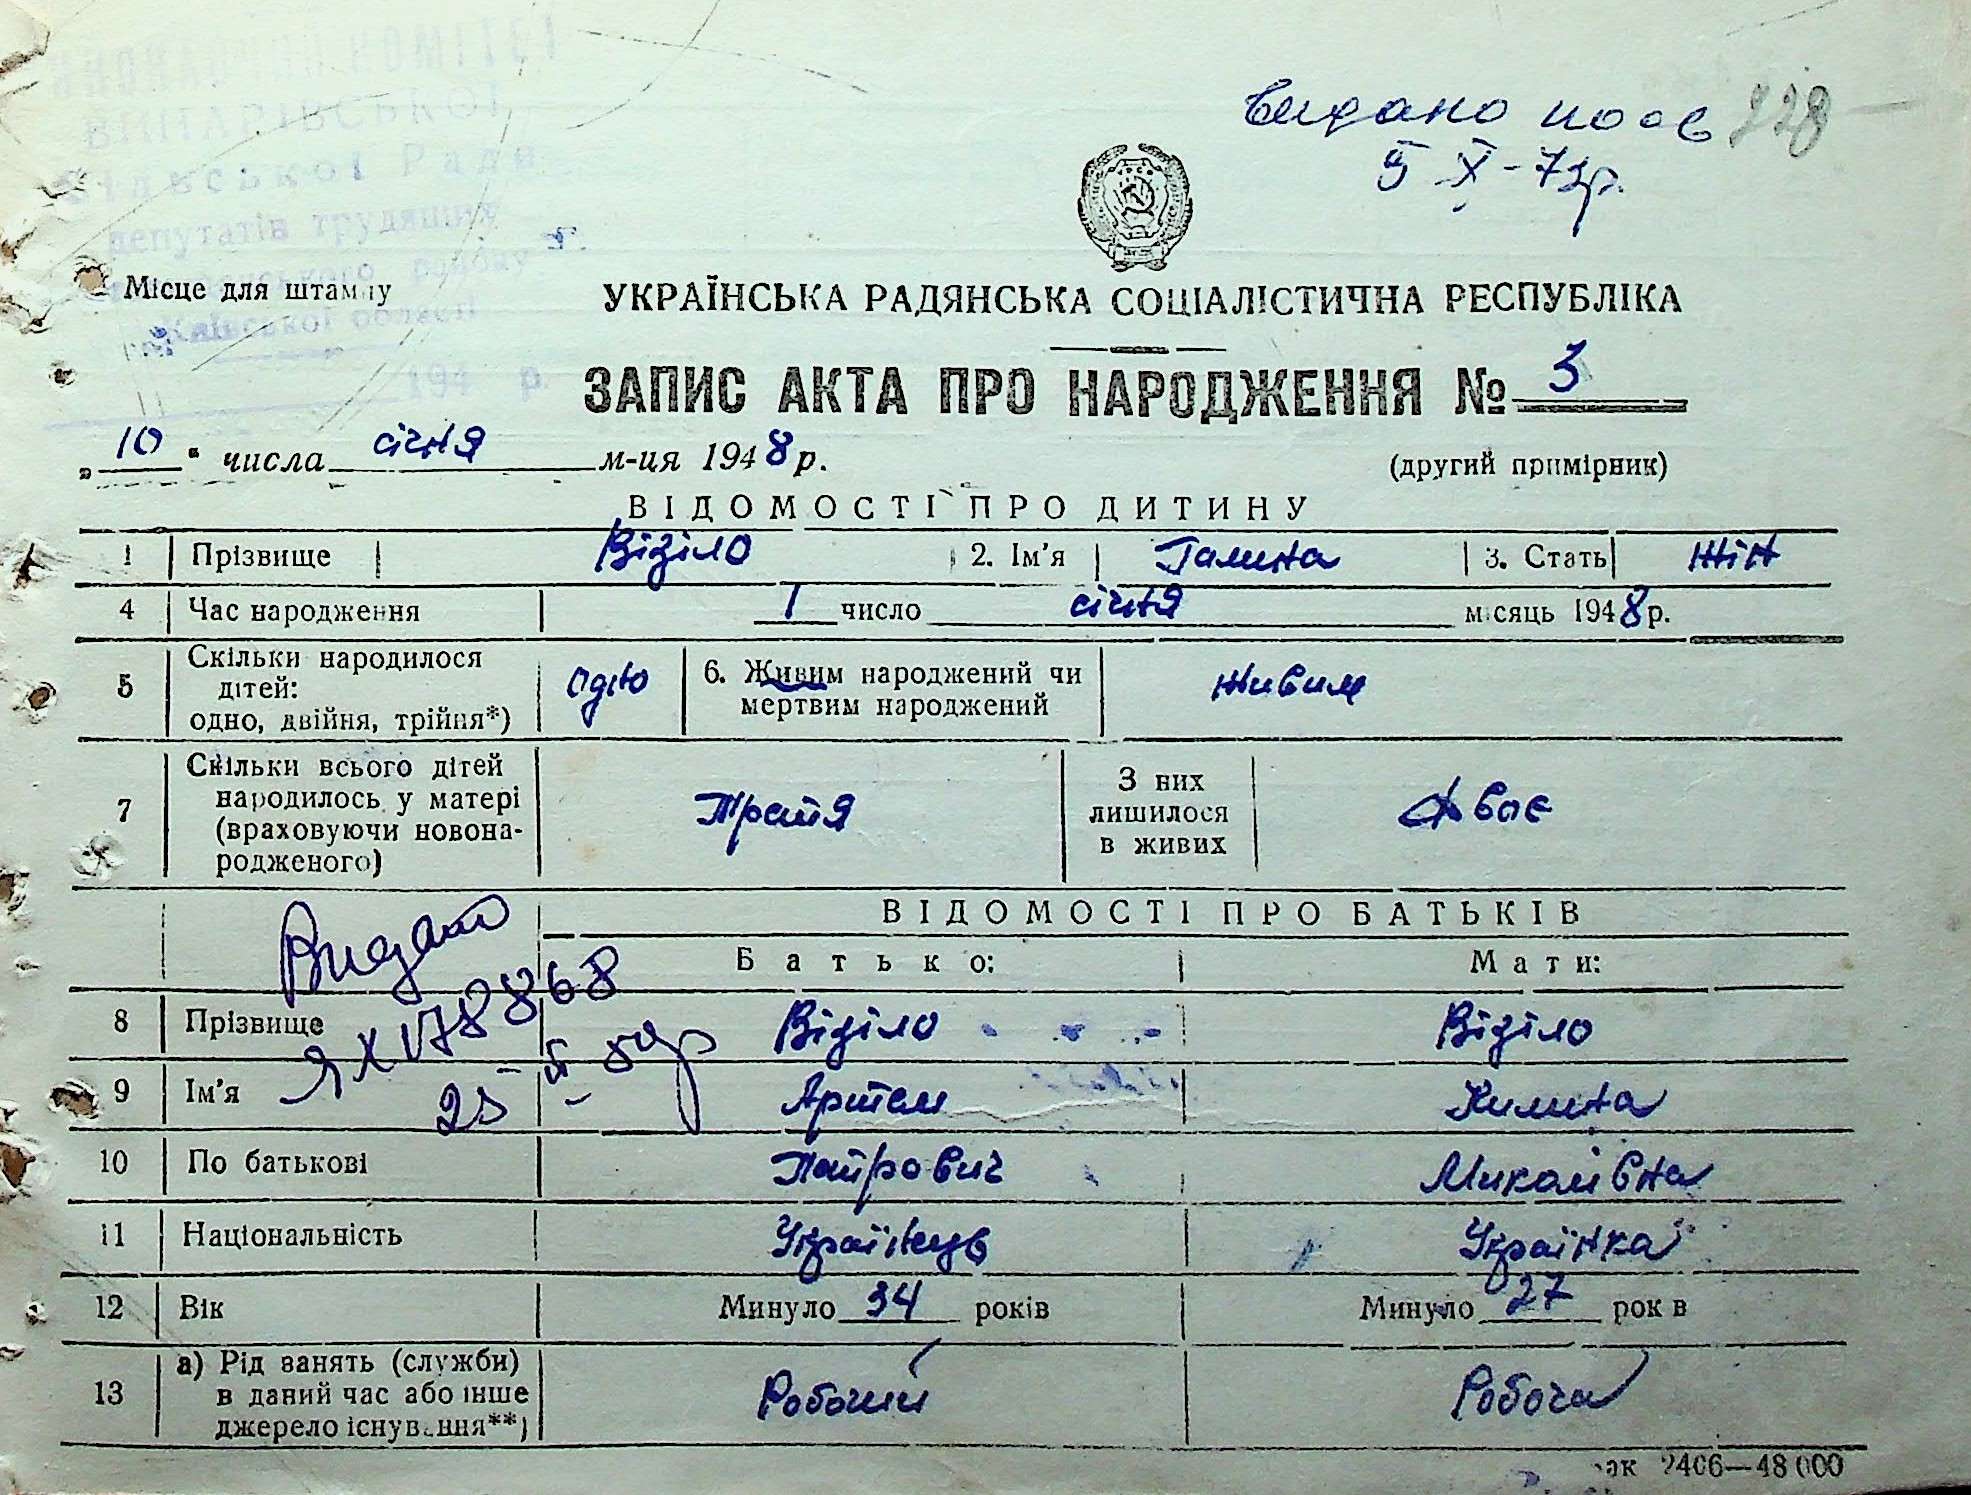 ВИКОНАВЧИЙ КОМІТЕТ
ВИНАРІВСЬКОЇ
Сільської Ради
депутатів трудящих
району
Київської області
194 р.
видано посв 228
5 X - 73р.
Місце для штампу
УКРАЇНСЬКА РАДЯНСЬКА СОЦІАЛІСТИЧНА РЕСПУБЛІКА
ЗАПИС АКТА ПРО НАРОДЖЕННЯ № 3
„10“ числа січня м-ця 1948 р.
(другий примірник)
ВІДОМОСТІ ПРО ДИТИНУ
1 Прізвище Візіло 2. Ім'я Галина 3. Стать жін
4 Час народження 1 число січня місяць 1948 р.
5 Скільки народилося дітей: одно, двійня, трійня*) одно 6. Живим народжений чи мертвим народжений живим
7 Скільки всього дітей народилось у матері (враховуючи новонародженого) Третя З них лишилося в живих двоє
ВІДОМОСТІ ПРО БАТЬКІВ
Батько: Мати:
Видано
ЯХ 1788868
25
8 Прізвище Візіло Візіло
9 Ім'я Артем Килина
10 По батькові Петрович Миколівна
11 Національність Українець Українка
12 Вік Минуло 34 років Минуло 27 рок в
13 а) Рід занять (служби) в даний час або інше джерело існування**) Робочий Робоча
2406—48 000